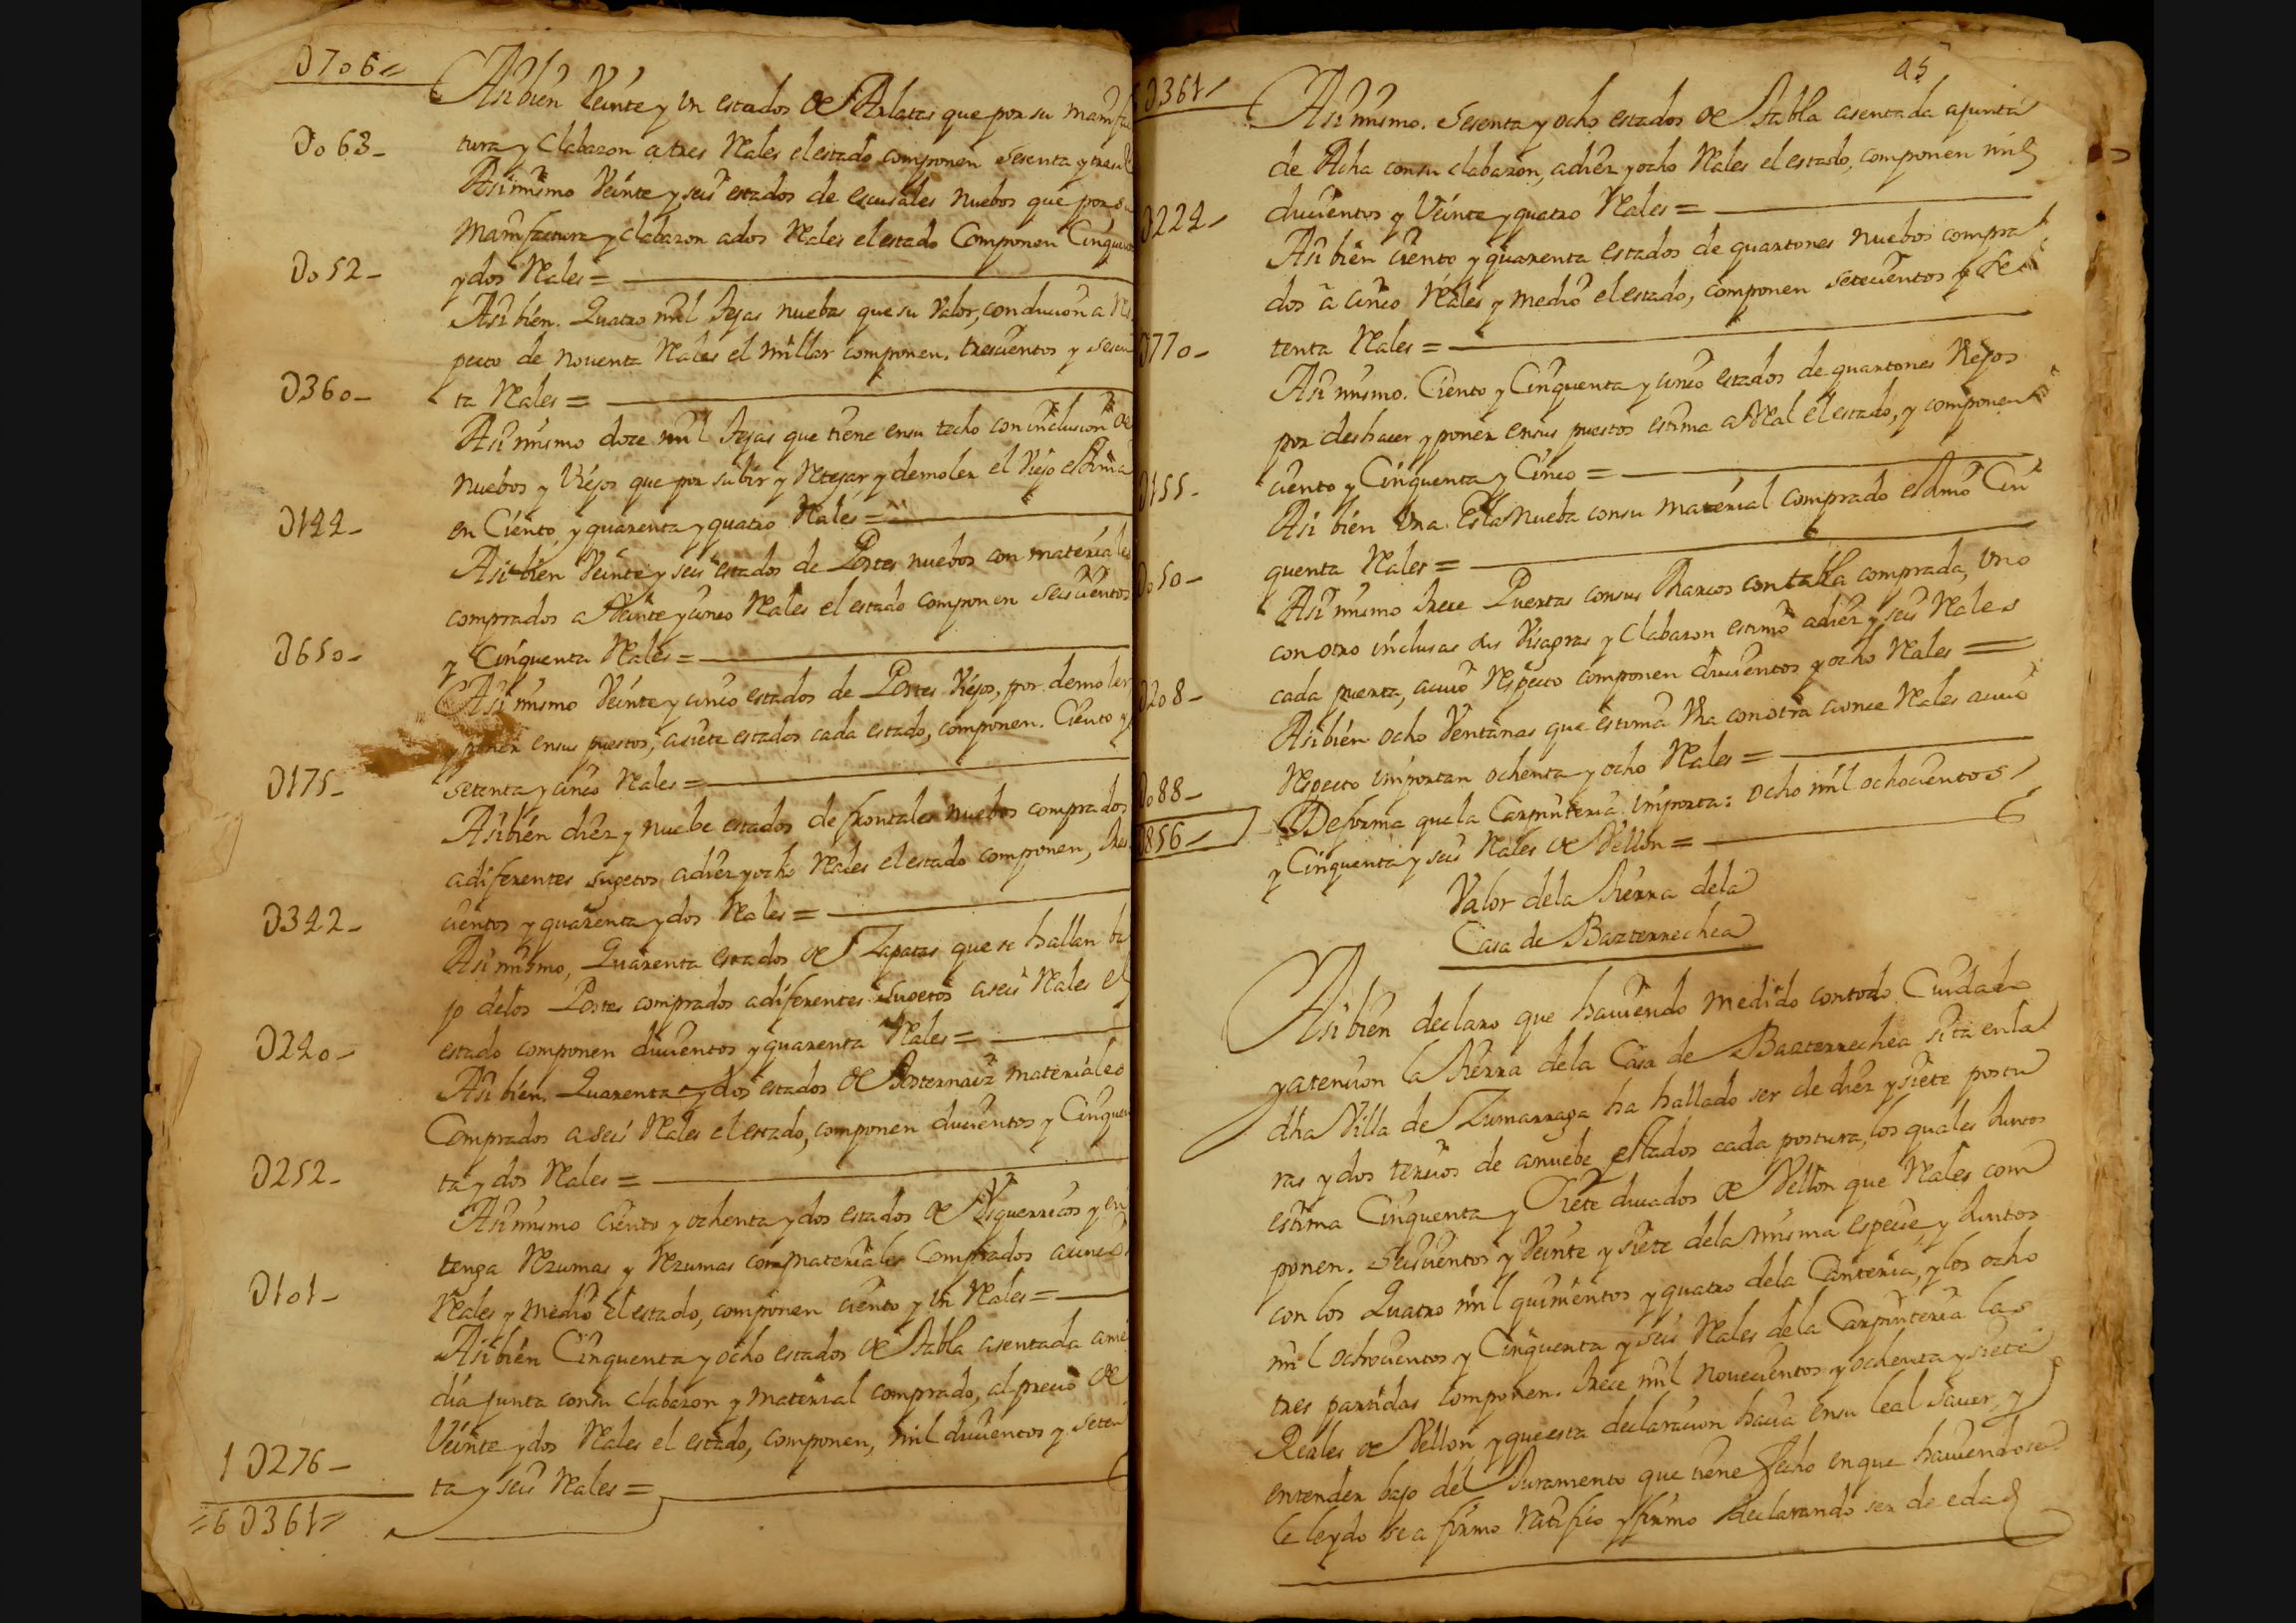 D706=
Asi bien Veinte y un estados de Arlatas que por su manifac
D063- tura y Clabazon a tres Reales el estado componen sesenta y tres
Asi mismo Veinte y seis estados de escusales nuebos que por su
Manifactura y clabazon a dos Reales el estado Componen Cinquen
D052- y dos Reales =
Asi bien. Quatro mil Tejas nuebas que su Valor, conducion a Res
pecto de noventa Reales el millar componen. trescientos y sesen
D360- ta Reales =
Asi mismo doce mil Tejas que tiene en su techo con inclusion de
nuebos y Viejos que por subir y Retejar y demoler el Viejo estima
D144- en Ciento, y quarenta y quatro Reales =
Asi bien Veinte y seis estados de Postes nuebos con materiales
comprados a Veinte y cinco Reales el estado componen seiscientos
D650- y Cinquenta Reales =
Asi mismo Veinte y cinco estados de Postes Viejos, por demoler
y poner en sus puestos, a siete estados cada estado, componen. Ciento y
D175- setenta y cinco Reales =
Asi bien diez y nuebe estados de frontales nuebos comprados
a diferentes sugetos a diez y ocho Reales el estado componen, tres
D342- cientos y quarenta y dos Reales =
Asi mismo, Quarenta estados de Zapatas que se hallan ba
jo de los Postes comprados a diferentes Sugetos a seis Reales el
D240- estado componen ducientos y quarenta Reales =
Asi bien. Quarenta y dos estados de materiales
Comprados a seis Reales el estado, componen ducientos y Cinquen
D252- ta y dos Reales =
Asi mismo ciento y ochenta y dos estados de y en
tenza Rezumas y Rezumas con materiales Comprados a cinco
D101- Reales y medio el estado, componen ciento y un Reales =
Asi bien Cinquenta y ocho estados de Tabla asentada a me
dia junta con su clabazon y material comprado, al precio de
Veinte y dos Reales el estado, componen, mil ducientos y seten
1D276- ta y seis Reales =
=6D361=
45
6D361=
Asi mismo. Sesenta y ocho estados de Tabla asentada a junta
de Acha con su clabazon, a diez y ocho Reales el estado, componen mil
D224- ducientos y Veinte y quatro Reales =
Asi bien ciento y quarenta estados de quartones nuebos compra
dos a cinco Reales y medio el estado, componen setecientos y se
D770- tenta Reales =
Asi mismo. Ciento y Cinquenta y cinco estados de quartones Viejos
por deshacer y poner en sus puestos estima a Real el estado, y componen
D155- ciento y Cinquenta y Cinco =
Asi bien Una Nueba con su material comprado estimo Cin
D050- quenta Reales =
Asi mismo trece Puertas con sus Marcos con talla comprada, Uno
con otro inclusas sus Visagras y Clabazon estimo a diez y seis Reales
D208- cada puerta, a cuio Respecto componen ducientos y ocho Reales =
Asi bien ocho Ventanas que estima Una con otra a once Reales a cuio
D088- Respecto importan ochenta y ocho Reales =
De forma que la Carpinteria importa: ocho mil ochocientos
D856= y Cinquenta y seis Reales de Vellon =
Valor dela tierra dela
Casa de Bazterrechea
Asi bien declaro que haviendo medido con todo Cuidado
y atencion la tierra dela Casa de Bazterrechea sita en la
dha Villa de Zumarraga ha hallado ser de diez y siete postu
ras y dos tercios de a nuebe estados cada postura, los quales Juntos
estima Cinquenta y Siete ducados de Vellon que Reales com
ponen. Seiscientos y Veinte y siete dela misma especie, y Juntos
con los Quatro mil quinientos y quatro dela Canteria, y los ocho
mil ochocientos y Cinquenta y seis Reales dela Carpinteria las
tres partidas componen. trece mil novecientos y ochenta y siete
Reales de Vellon y que esta declaracion hacia en su leal Saver, y
entender bajo del Juramento que tiene fecho en que haviendose
le leydo se afirmo ratifico y firmo declarando ser de edad